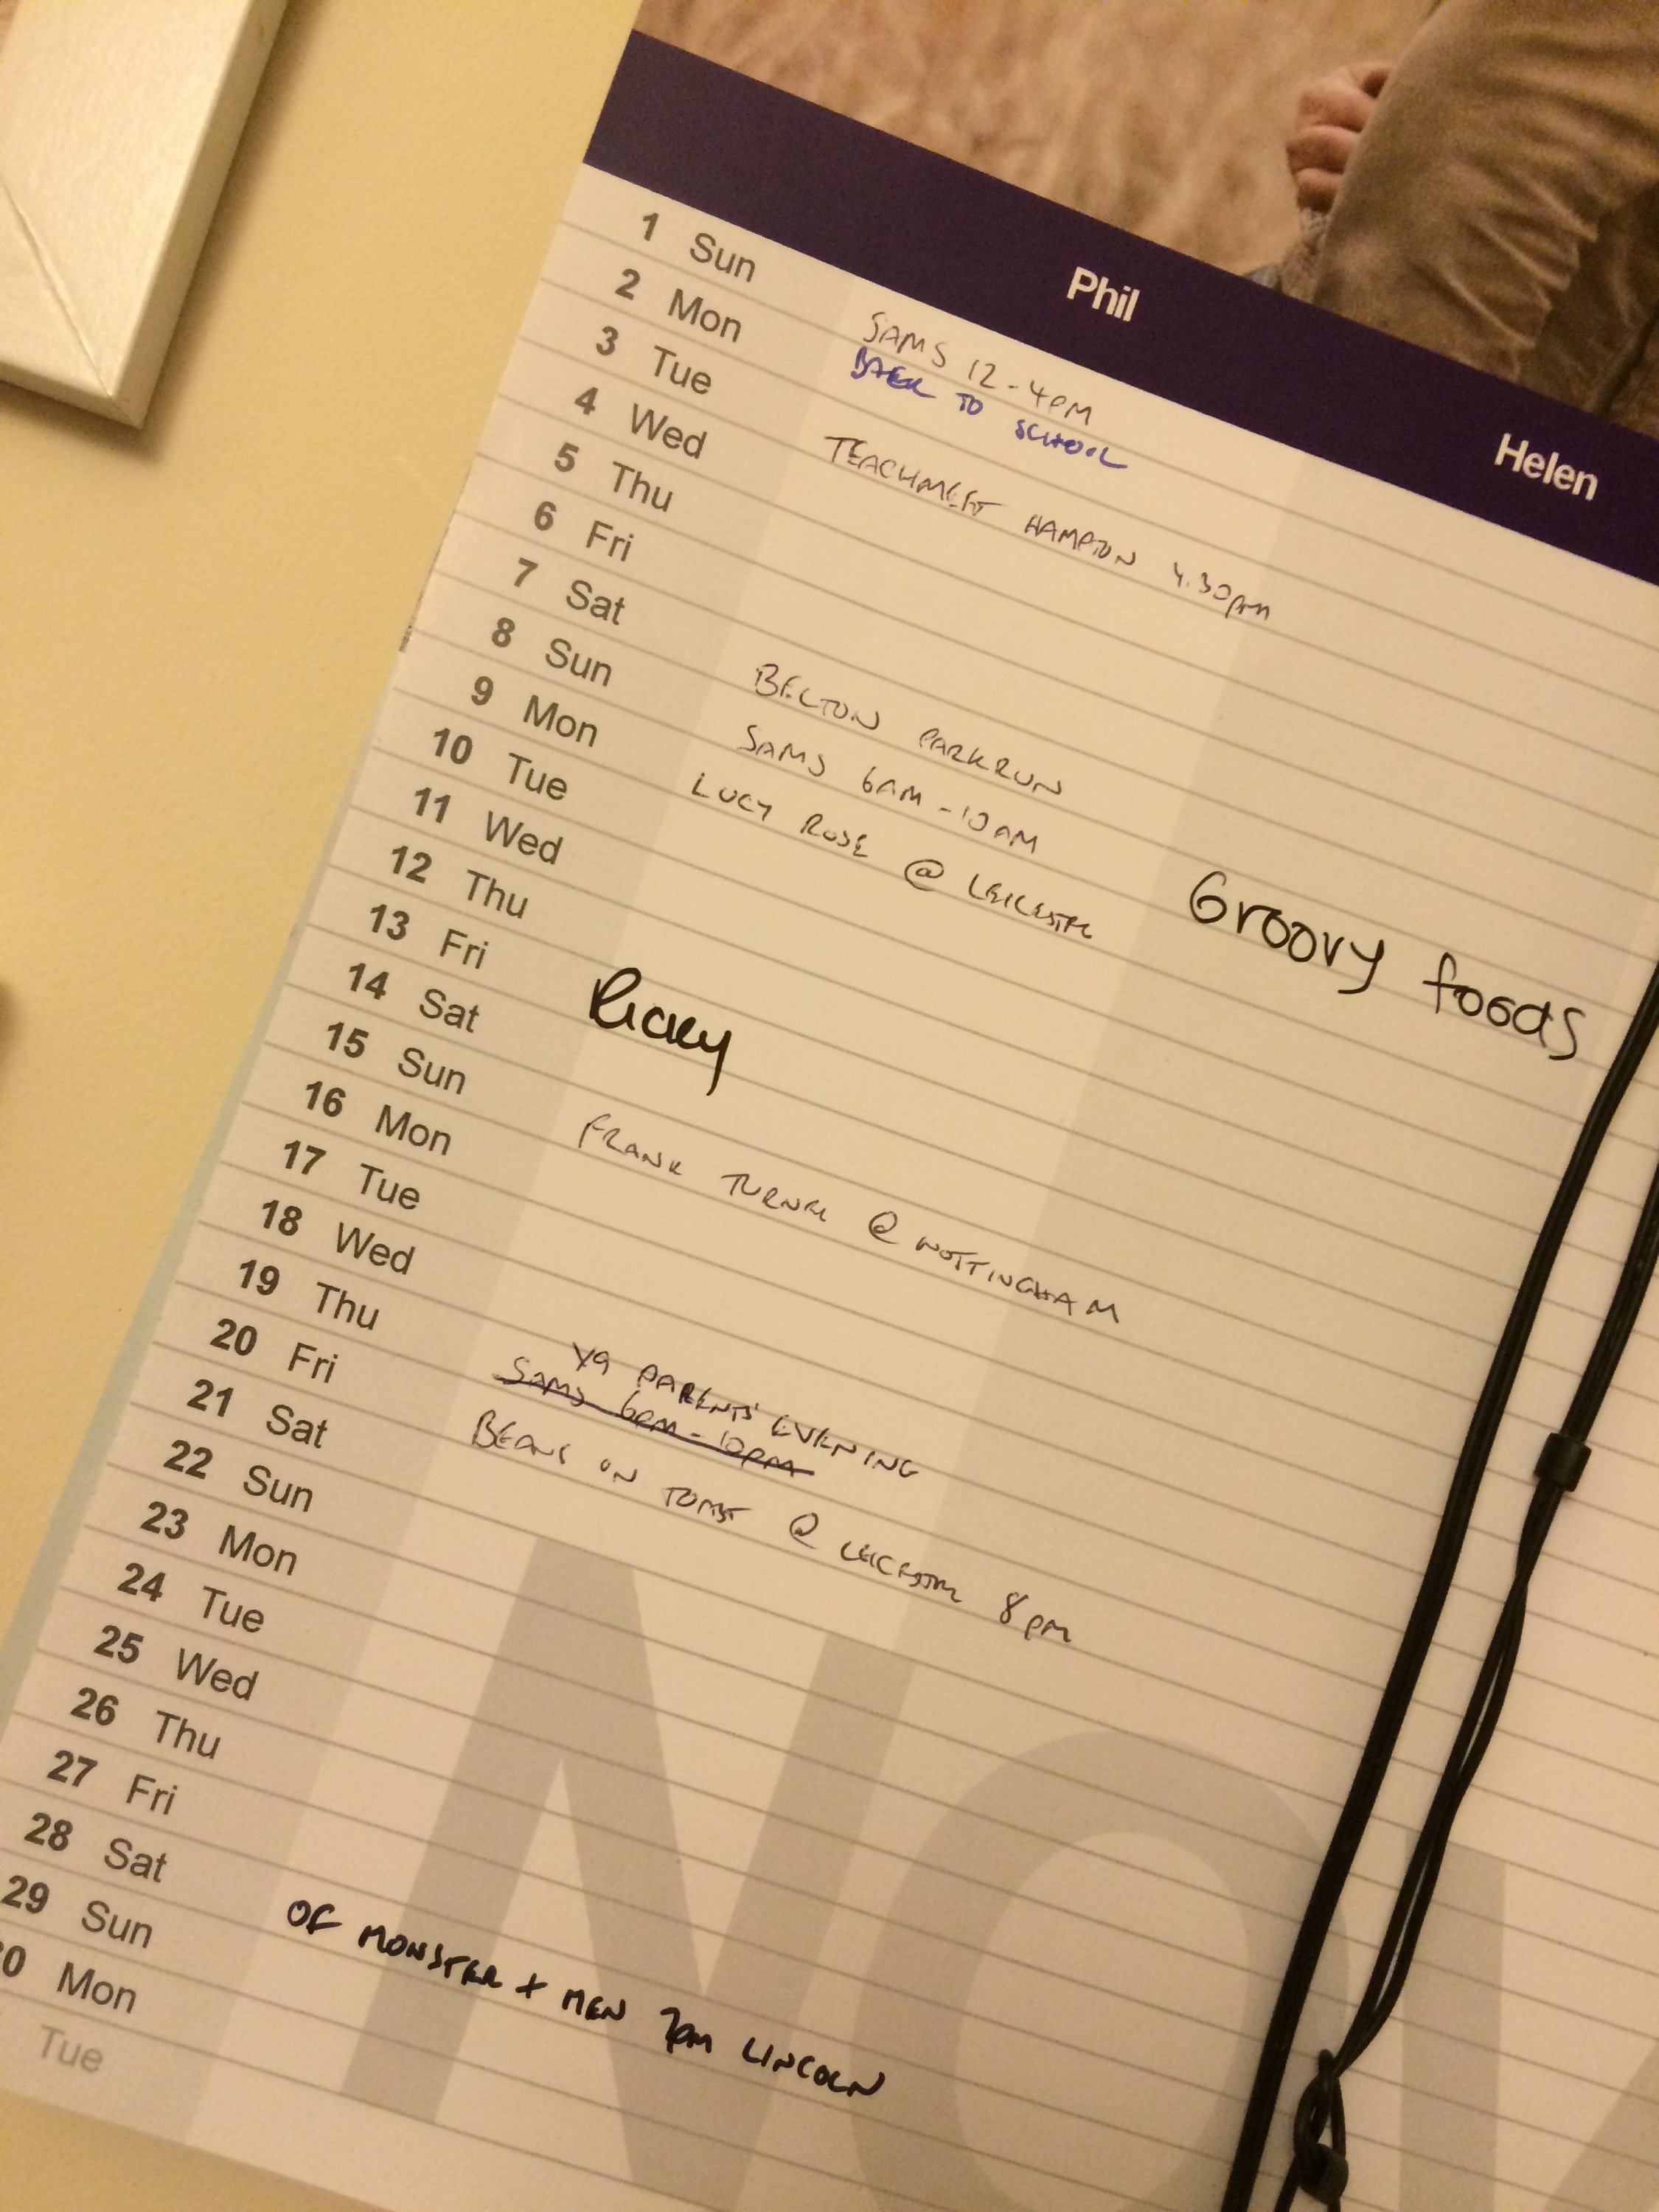 Phil Helen
1 Sun SAMS 12-4PM
2 Mon BACK TO SCHOOL
3 Tue TEACHMEET HAMPTON 4.30pm
4 Wed
5 Thu
6 Fri
7 Sat BELTON PARKRUN
8 Sun SAMS 6AM-10AM Groovy foods
9 Mon LUCY ROSE @ LEICESTER
10 Tue
11 Wed
12 Thu
13 Fri Ricky
14 Sat
15 Sun FRANK TURNER @ NOTTINGHAM
16 Mon
17 Tue
18 Wed
19 Thu Y9 PARENTS' EVENING
SAMS 6PM-10PM
20 Fri BEANS ON TOAST @ LEICESTER 8pm
21 Sat
22 Sun
23 Mon
24 Tue
25 Wed
26 Thu
27 Fri
28 Sat OF MONSTER + MEN 7pm LINCOLN
29 Sun
0 Mon
Tue
NO